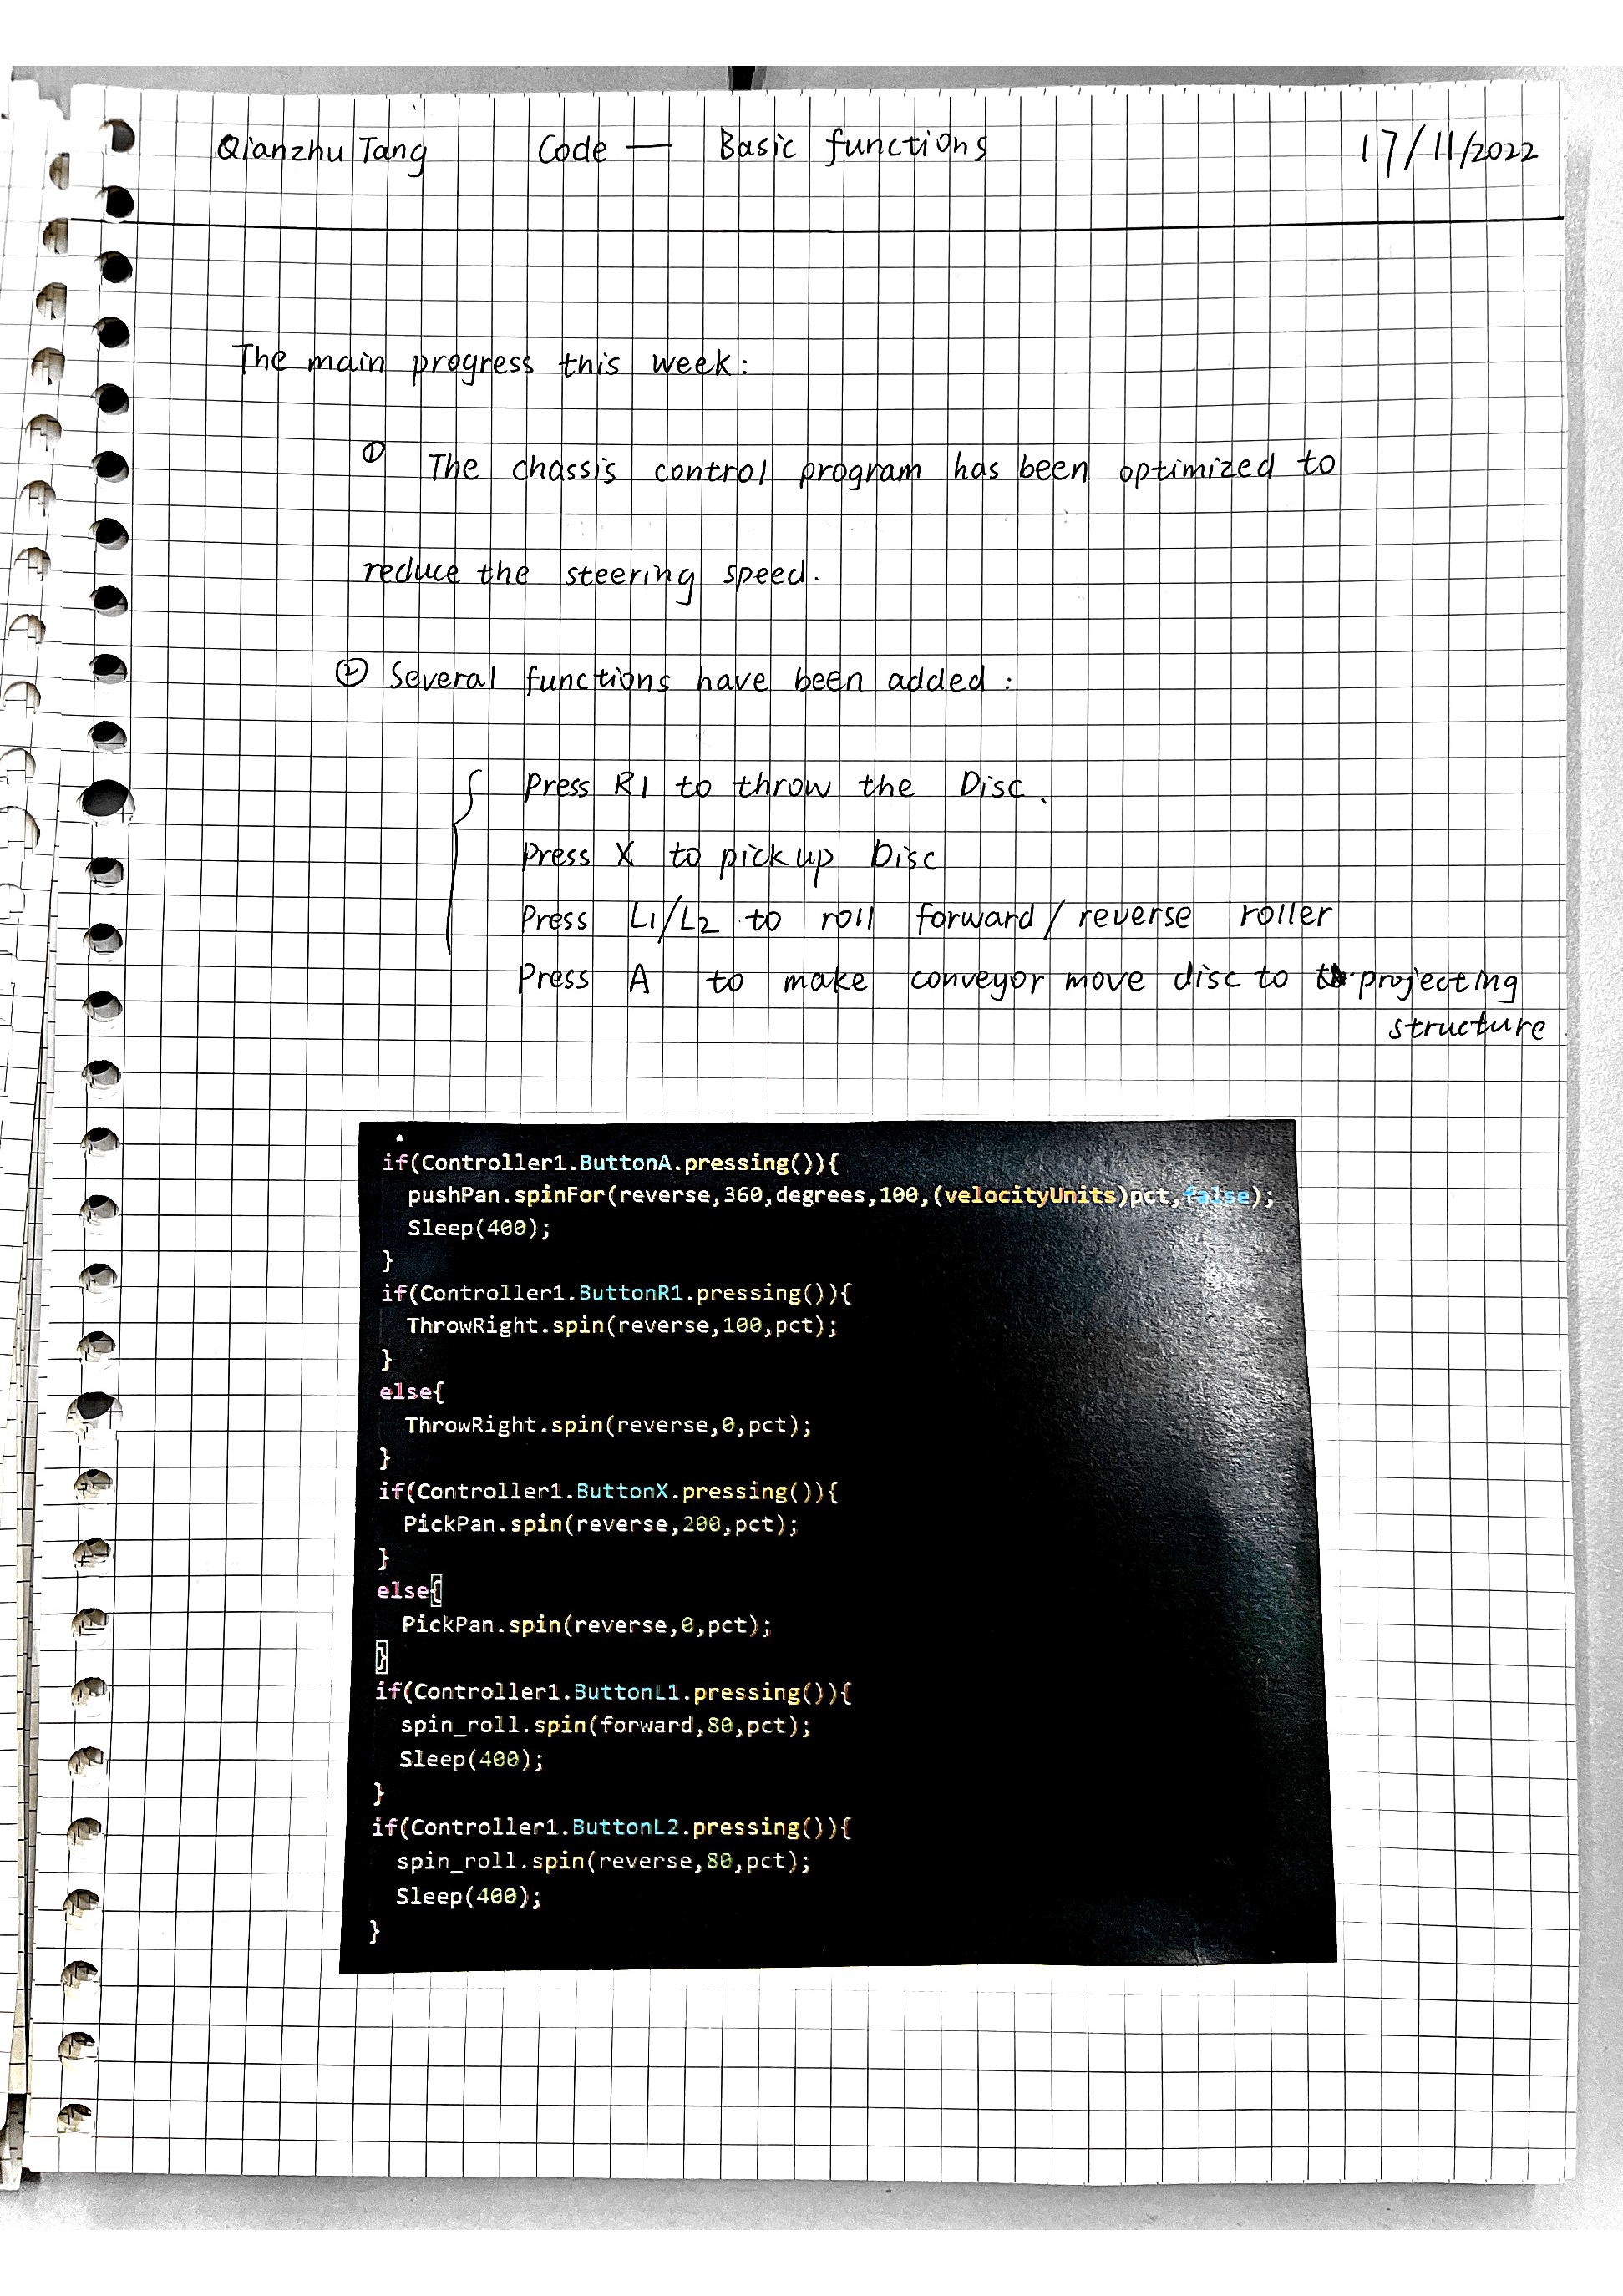 Qianzhu Tang Code — Basic functions 17/11/2022
The main progress this week:
① The chassis control program has been optimized to
reduce the steering speed.
② Several functions have been added:
Press R1 to throw the Disc.
Press X to pick up Disc
Press L1/L2 to roll forward/reverse roller
Press A to make conveyor move disc to projecting
structure
if(Controller1.ButtonA.pressing()){
pushPan.spinFor(reverse,360,degrees,100,(velocityUnits)pct,false);
Sleep(400);
}
if(Controller1.ButtonR1.pressing()){
ThrowRight.spin(reverse,100,pct);
}
else{
ThrowRight.spin(reverse,0,pct);
}
if(Controller1.ButtonX.pressing()){
PickPan.spin(reverse,200,pct);
}
else{
PickPan.spin(reverse,0,pct);
}
if(Controller1.ButtonL1.pressing()){
spin_roll.spin(forward,80,pct);
Sleep(400);
}
if(Controller1.ButtonL2.pressing()){
spin_roll.spin(reverse,80,pct);
Sleep(400);
}